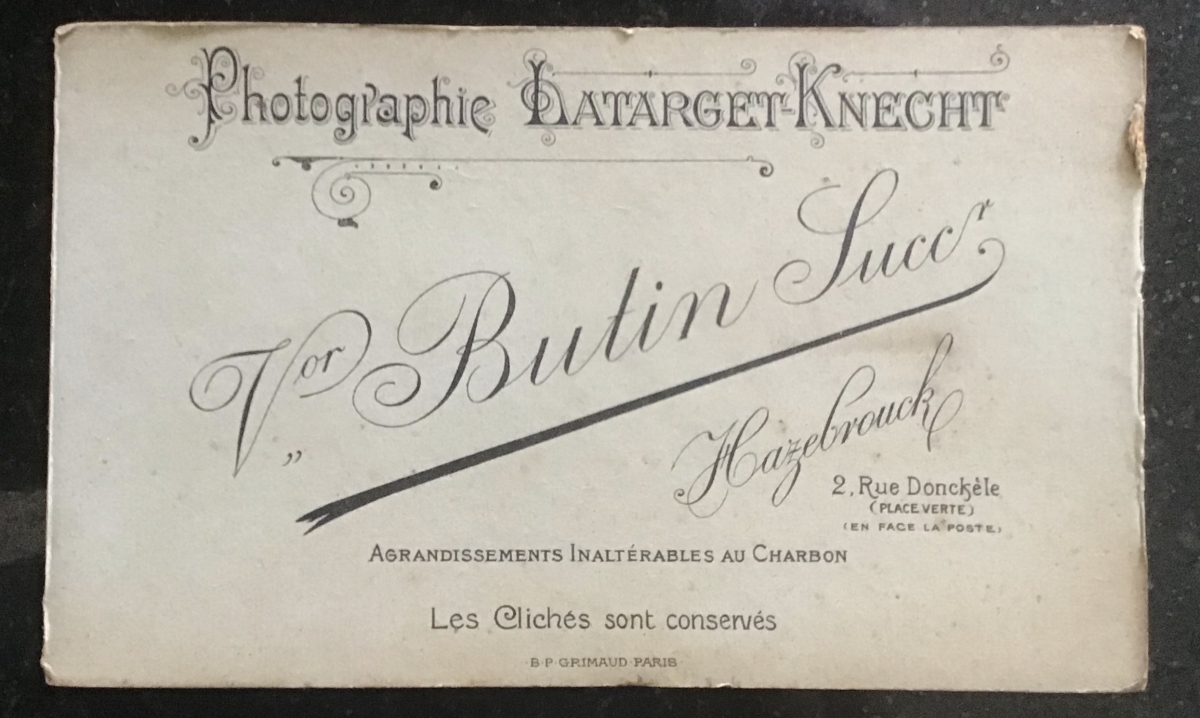 Photographie LATARGET-KNECHT
Vor Butin Succr
Hazebrouck
2, Rue Donckèle
(PLACE VERTE)
(EN FACE LA POSTE)
AGRANDISSEMENTS INALTÉRABLES AU CHARBON
Les Clichés sont conservés
B·P·GRIMAUD·PARIS